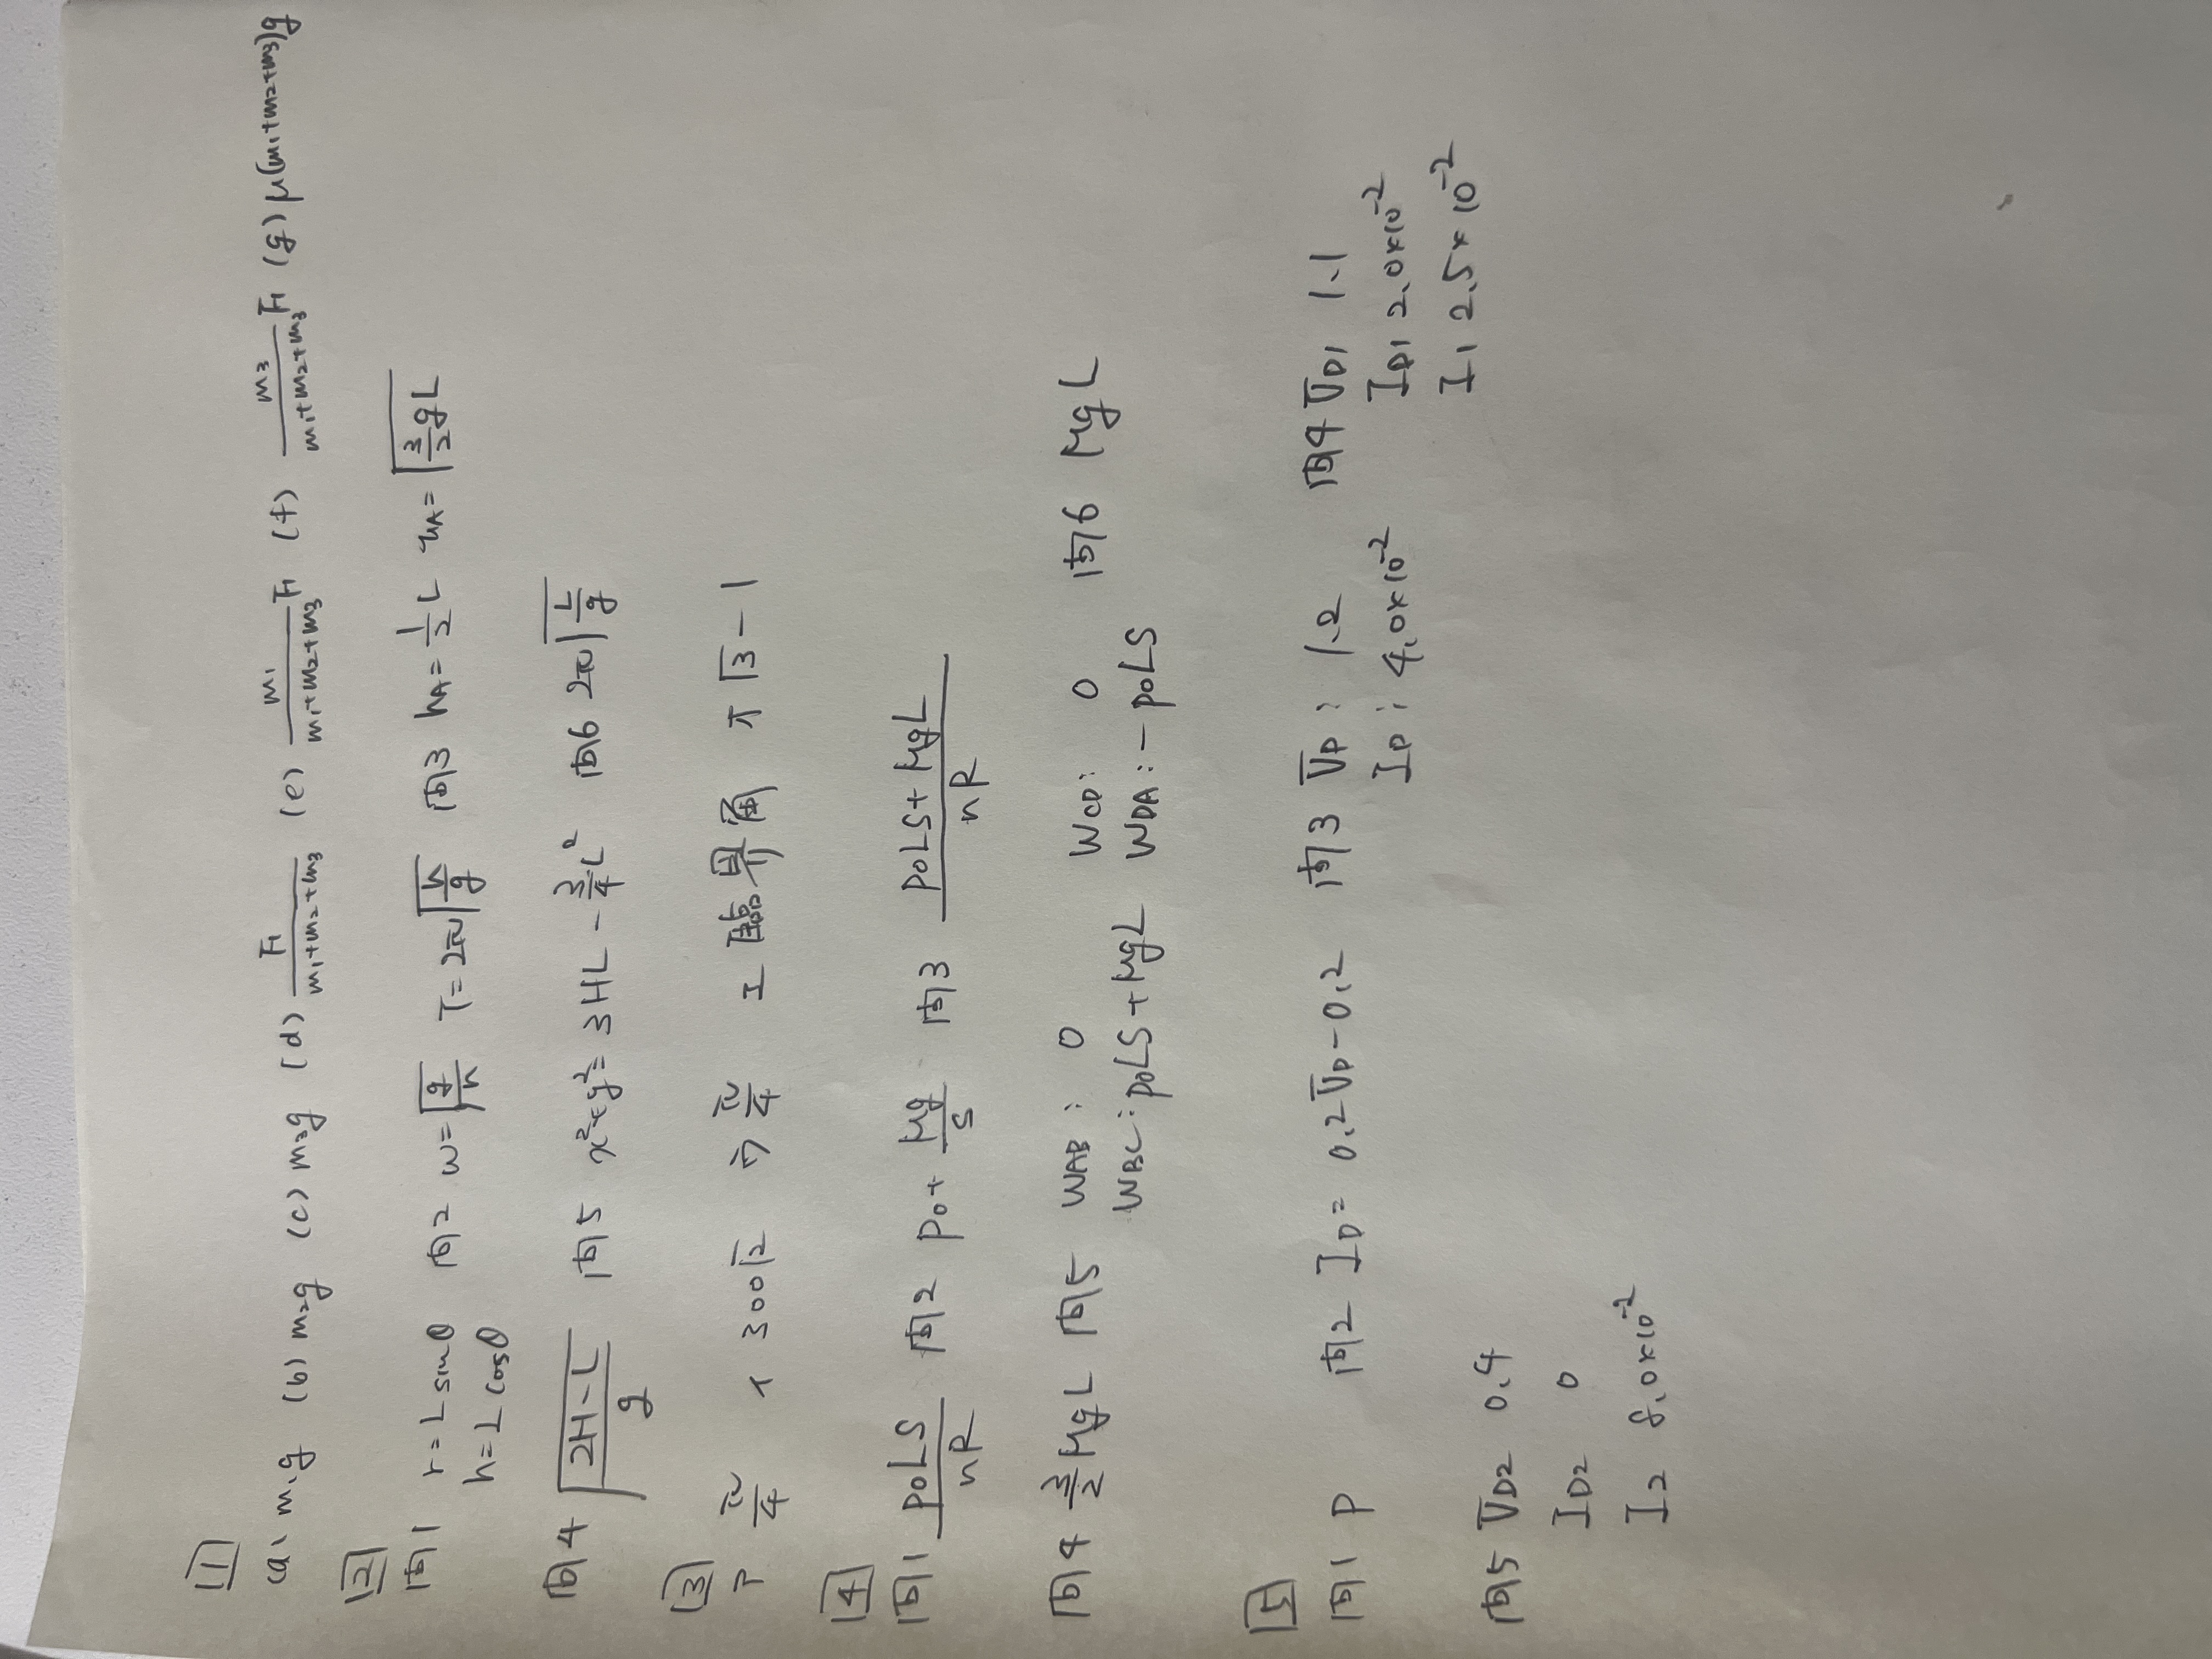 1
(a) m₁g (b) m₂g (c) m₃g (d) F/(m₁+m₂+m₃) (e) m₁/(m₁+m₂+m₃) F (f) m₃/(m₁+m₂+m₃) F (g) μ(m₁+m₂+m₃)g
2
問1 r=Lsinθ 問2 ω=√(g/h) T=2π√(h/g) 問3 hA=1/2 L vA=√(3/2 gL)
h=Lcosθ
問4 √((2H-L)/g) 問5 x²+y²=3HL-3/4 L² 問6 2π√(L/g)
3
ア π/4 イ 300√2 ウ π/4 エ 臨界角 オ √3-1
4
問1 p₀LS/nR 問2 p₀+Mg/S 問3 (p₀LS+MgL)/nR
問4 3/2 MgL 問5 WAB: 0 WCD: 0 問6 MgL
WBC: p₀LS+MgL WDA: -p₀LS
5
問1 P 問2 ID=0.2VD-0.2 問3 VP: 1.2 問4 VD1 1.1
IP: 4.0×10⁻² ID1 2.0×10⁻²
I1 2.5×10⁻²
問5 VD2 0.4
ID2 0
I2 8.0×10⁻²